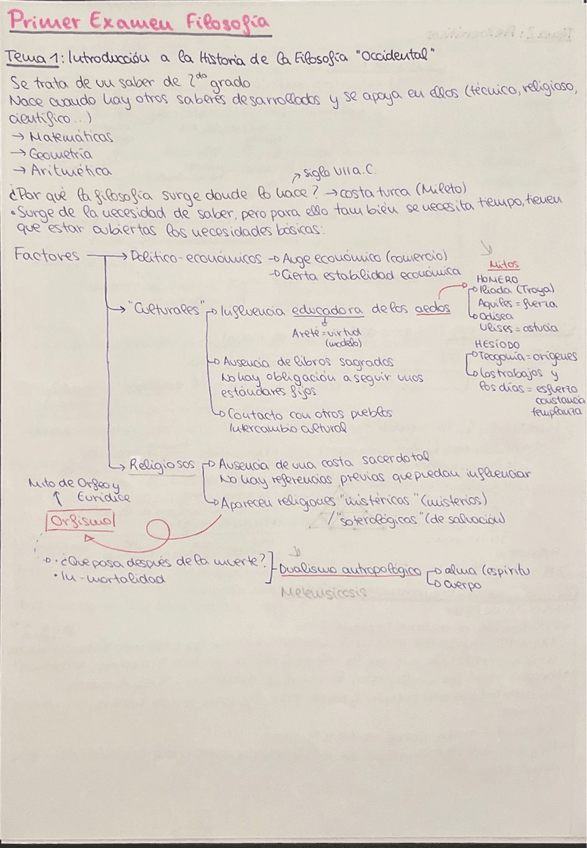 Primer Examen Filosofía
Tema 1: Introducción a la Historia de la Filosofía "Occidental"
Se trata de un saber de 2do grado
Nace cuando hay otros saberes desarrollados y se apoya en ellos (técnico, religioso,
científico...)
→ Matemáticas
→ Geometría
→ Aritmética
siglo VII a.C.
¿Por qué la filosofía surge donde lo hace? → costa turca (Mileto)
• Surge de la necesidad de saber, pero para ello también se necesita tiempo, tienen
que estar cubiertas las necesidades básicas:
Factores
Político-económicos
Auge económico (comercio)
Cierta estabilidad económica
"Culturales"
Influencia educadora de los aedos
Areté = virtud
(modelo)
Mitos
HOMERO
Iliada (Troya)
Aquiles = fuerza
Odisea
Ulises = astucia
HESÍODO
Teogonía = orígenes
Los trabajos y
los días = esfuerzo
constancia
templanza
Ausencia de libros sagrados
No hay obligación a seguir unos
estándares fijos
Contacto con otros pueblos
Intercambio cultural
Religiosos
Ausencia de una costa sacerdotal
No hay referencias previas que puedan influenciar
Aparecen religiones "mistéricas" (misterios)
/ "soterológicas" (de salvación)
Mito de Orfeo y
Eurídice
Orfismo
• ¿Que pasa después de la muerte?
• In-mortalidad
Dualismo antropológico
alma (espíritu
cuerpo